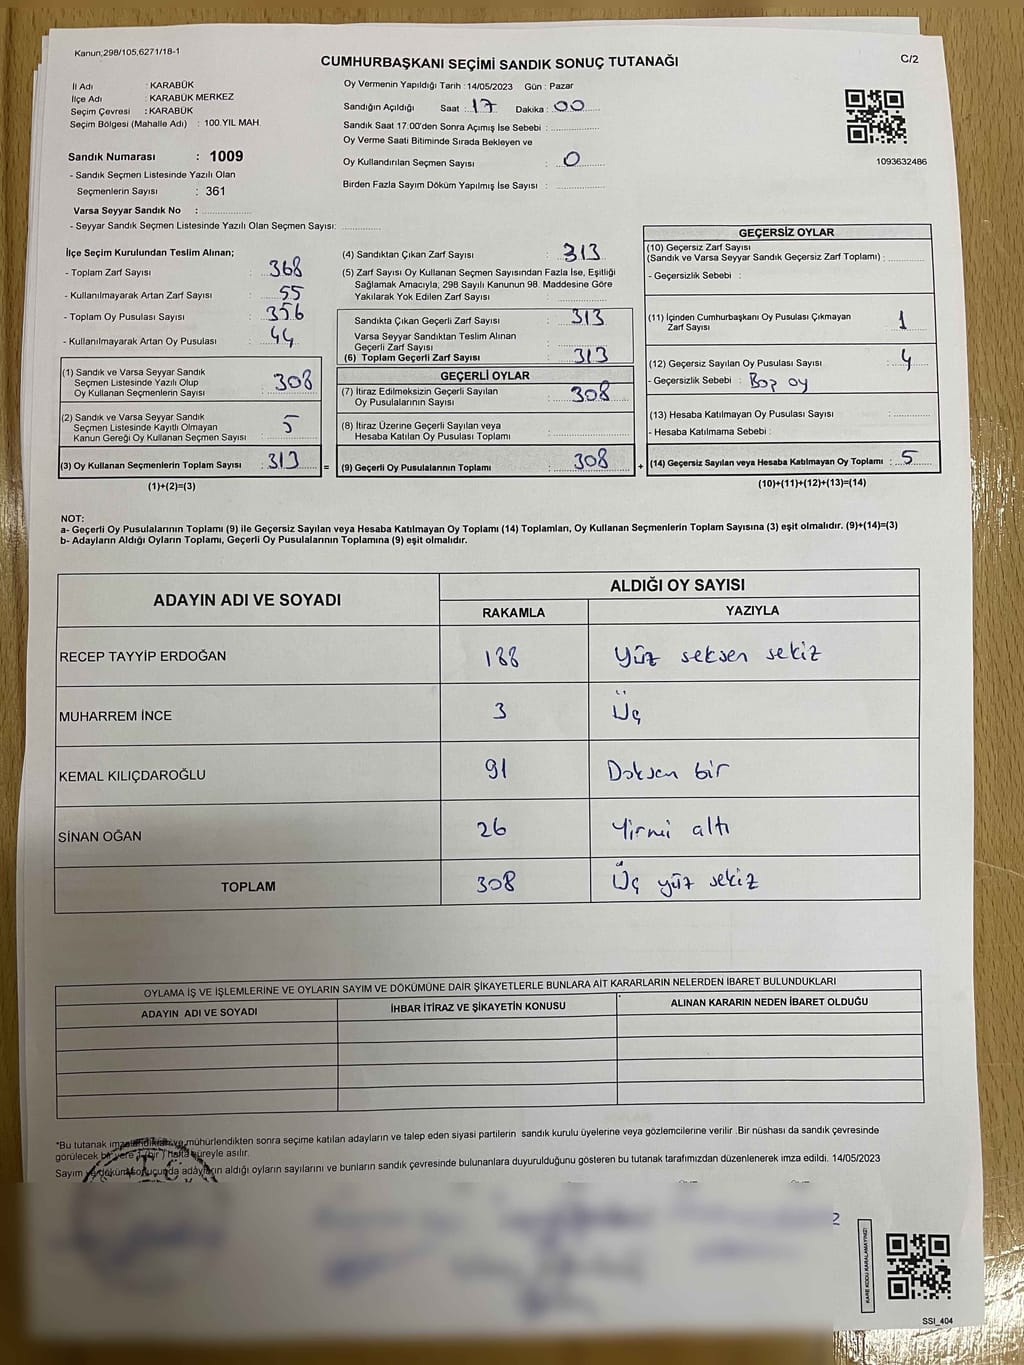 Kanun;298/105,6271/18-1
CUMHURBAŞKANI SEÇİMİ SANDIK SONUÇ TUTANAĞI
C/2
İl Adı : KARABÜK
İlçe Adı : KARABÜK MERKEZ
Seçim Çevresi : KARABÜK
Seçim Bölgesi (Mahalle Adı) : 100.YIL MAH.
Sandık Numarası : 1009
- Sandık Seçmen Listesinde Yazılı Olan
Seçmenlerin Sayısı : 361
Varsa Seyyar Sandık No :
- Seyyar Sandık Seçmen Listesinde Yazılı Olan Seçmen Sayısı:
Oy Vermenin Yapıldığı Tarih : 14/05/2023 Gün : Pazar
Sandığın Açıldığı Saat : 17 Dakika : 00
Sandık Saat 17:00'den Sonra Açımış İse Sebebi :
Oy Verme Saati Bitiminde Sırada Bekleyen ve
Oy Kullandırılan Seçmen Sayısı : 0
Birden Fazla Sayım Döküm Yapılmış İse Sayısı :
1093632486
İlçe Seçim Kurulundan Teslim Alınan;
- Toplam Zarf Sayısı : 368
- Kullanılmayarak Artan Zarf Sayısı : 55
- Toplam Oy Pusulası Sayısı : 356
- Kullanılmayarak Artan Oy Pusulası : 44
(1) Sandık ve Varsa Seyyar Sandık
Seçmen Listesinde Yazılı Olup
Oy Kullanan Seçmenlerin Sayısı : 308
(2) Sandık ve Varsa Seyyar Sandık
Seçmen Listesinde Kayıtlı Olmayan
Kanun Gereği Oy Kullanan Seçmen Sayısı : 5
(3) Oy Kullanan Seçmenlerin Toplam Sayısı : 313
(1)+(2)=(3)
(4) Sandıktan Çıkan Zarf Sayısı : 313
(5) Zarf Sayısı Oy Kullanan Seçmen Sayısından Fazla İse, Eşitliği
Sağlamak Amacıyla, 298 Sayılı Kanunun 98. Maddesine Göre
Yakılarak Yok Edilen Zarf Sayısı :
Sandıkta Çıkan Geçerli Zarf Sayısı : 313
Varsa Seyyar Sandıktan Teslim Alınan
Geçerli Zarf Sayısı :
(6) Toplam Geçerli Zarf Sayısı : 313
GEÇERLİ OYLAR
(7) İtiraz Edilmeksizin Geçerli Sayılan
Oy Pusulalarının Sayısı : 308
(8) İtiraz Üzerine Geçerli Sayılan veya
Hesaba Katılan Oy Pusulası Toplamı :
= (9) Geçerli Oy Pusulalarının Toplamı : 308
GEÇERSİZ OYLAR
(10) Geçersiz Zarf Sayısı
(Sandık ve Varsa Seyyar Sandık Geçersiz Zarf Toplamı) :
- Geçersizlik Sebebi :
(11) İçinden Cumhurbaşkanı Oy Pusulası Çıkmayan
Zarf Sayısı : 1
(12) Geçersiz Sayılan Oy Pusulası Sayısı : 4
- Geçersizlik Sebebi : Boş oy
(13) Hesaba Katılmayan Oy Pusulası Sayısı :
- Hesaba Katılmama Sebebi :
+ (14) Geçersiz Sayılan veya Hesaba Katılmayan Oy Toplamı : 5
(10)+(11)+(12)+(13)=(14)
NOT:
a- Geçerli Oy Pusulalarının Toplamı (9) ile Geçersiz Sayılan veya Hesaba Katılmayan Oy Toplamı (14) Toplamları, Oy Kullanan Seçmenlerin Toplam Sayısına (3) eşit olmalıdır. (9)+(14)=(3)
b- Adayların Aldığı Oyların Toplamı, Geçerli Oy Pusulalarının Toplamına (9) eşit olmalıdır.
ADAYIN ADI VE SOYADI
ALDIĞI OY SAYISI
RAKAMLA YAZIYLA
RECEP TAYYİP ERDOĞAN 188 Yüz seksen sekiz
MUHARREM İNCE 3 Üç
KEMAL KILIÇDAROĞLU 91 Doksan bir
SİNAN OĞAN 26 Yirmi altı
TOPLAM 308 Üç yüz sekiz
OYLAMA İŞ VE İŞLEMLERİNE VE OYLARIN SAYIM VE DÖKÜMÜNE DAİR ŞİKAYETLERLE BUNLARA AİT KARARLARIN NELERDEN İBARET BULUNDUKLARI
ADAYIN ADI VE SOYADI İHBAR İTİRAZ VE ŞİKAYETİN KONUSU ALINAN KARARIN NEDEN İBARET OLDUĞU
*Bu tutanak imzalandıktan ve mühürlendikten sonra seçime katılan adayların ve talep eden siyasi partilerin sandık kurulu üyelerine veya gözlemcilerine verilir .Bir nüshası da sandık çevresinde
görülecek bir yere 1 (bir ) hafta süreyle asılır.
Sayım ve döküm sonucunda adayların aldığı oyların sayılarını ve bunların sandık çevresinde bulunanlara duyurulduğunu gösteren bu tutanak tarafımızdan düzenlenerek imza edildi. 14/05/2023
T.C.
2
KARE KODU KARALAMAYINIZ!
SSI_404